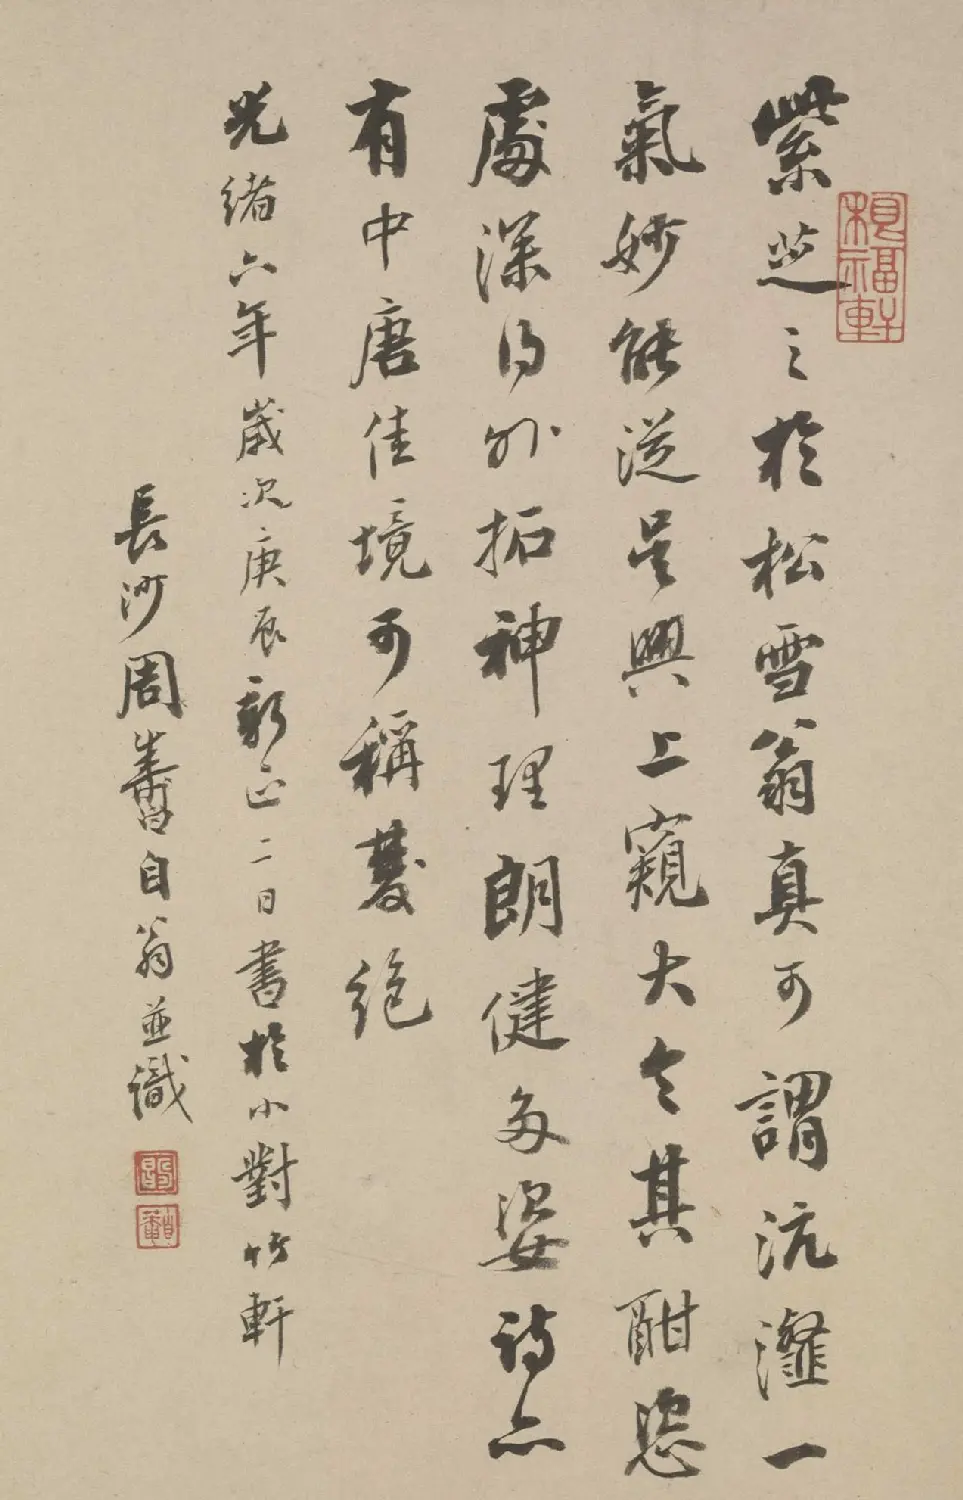 紫芝之於松雪翁真可謂沆瀣一
氣妙能從吳興上窺大令其酣恣
處深得外拓神理朗健多姿詩亦
有中唐佳境可稱雙絕
光緒六年歲次庚辰新正二日書於小對竹軒
長沙周壽昌自翁並識